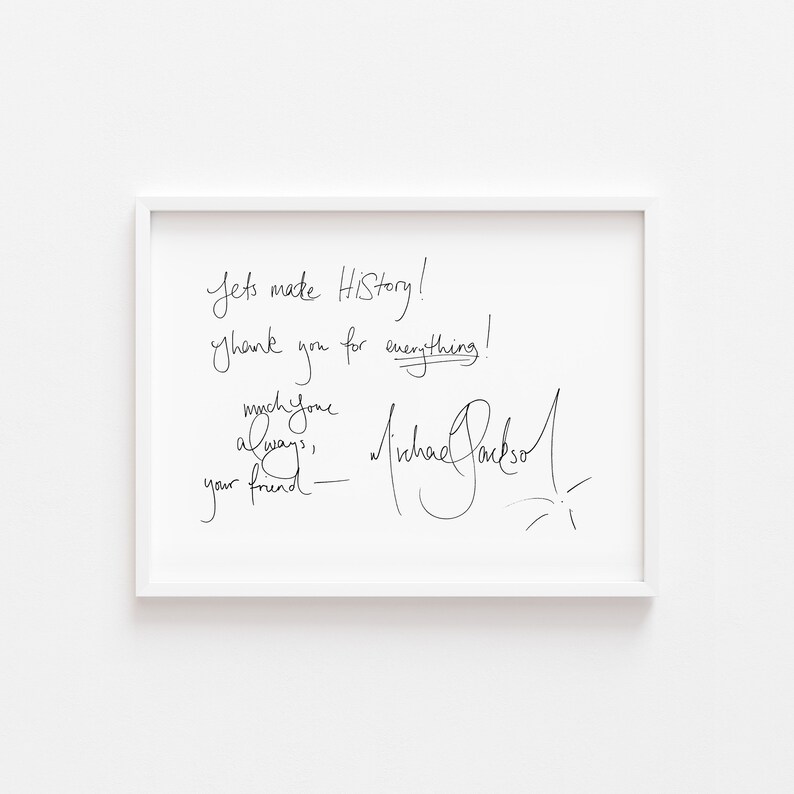 Lets made HIStory!
Thank you for everything!
much love
always,
your friend —
Michael Jackson